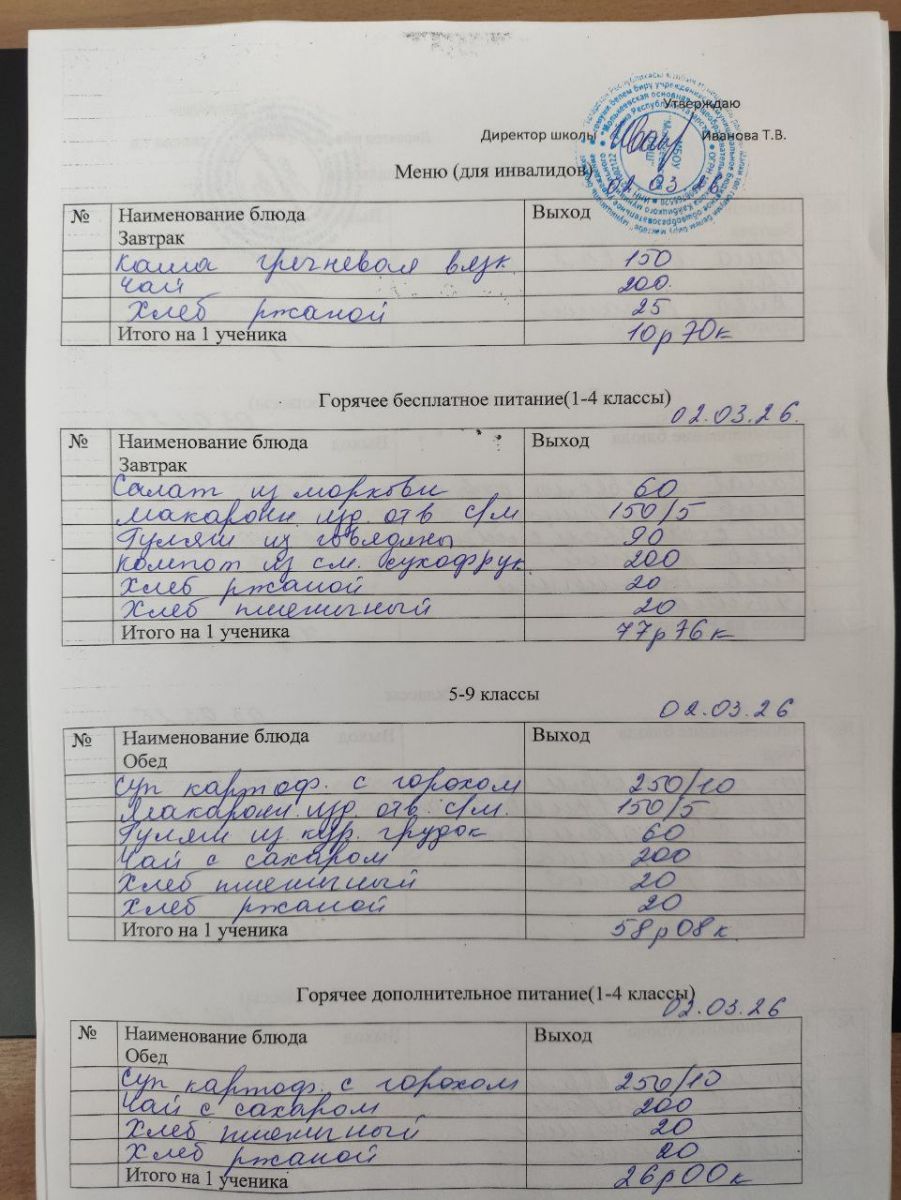 Утверждаю
Директор школы Иванова Т.В.
Меню (для инвалидов)
02.03.26
№ Наименование блюда Выход
Завтрак
Каша гречневая вязк 150
Чай 200
Хлеб ржаной 25
Итого на 1 ученика 10р 70к
Горячее бесплатное питание(1-4 классы)
02.03.26.
№ Наименование блюда Выход
Завтрак
Салат из моркови 60
Макарон. изд. отв с/м 150/5
Гуляш из говядины 90
Компот из см. сухофрук 200
Хлеб ржаной 20
Хлеб пшеничный 20
Итого на 1 ученика 77р 76к
5-9 классы
02.03.26
№ Наименование блюда Выход
Обед
Суп картоф. с горохом 250/10
Макарон. изд. отв. с/м. 150/5
Гуляш из кур. грудок 60
Чай с сахаром 200
Хлеб пшеничный 20
Хлеб ржаной 20
Итого на 1 ученика 58р 08к
Горячее дополнительное питание(1-4 классы)
02.03.26
№ Наименование блюда Выход
Обед
Суп картоф. с горохом 250/10
Чай с сахаром 200
Хлеб пшеничный 20
Хлеб ржаной 20
Итого на 1 ученика 26р 00к